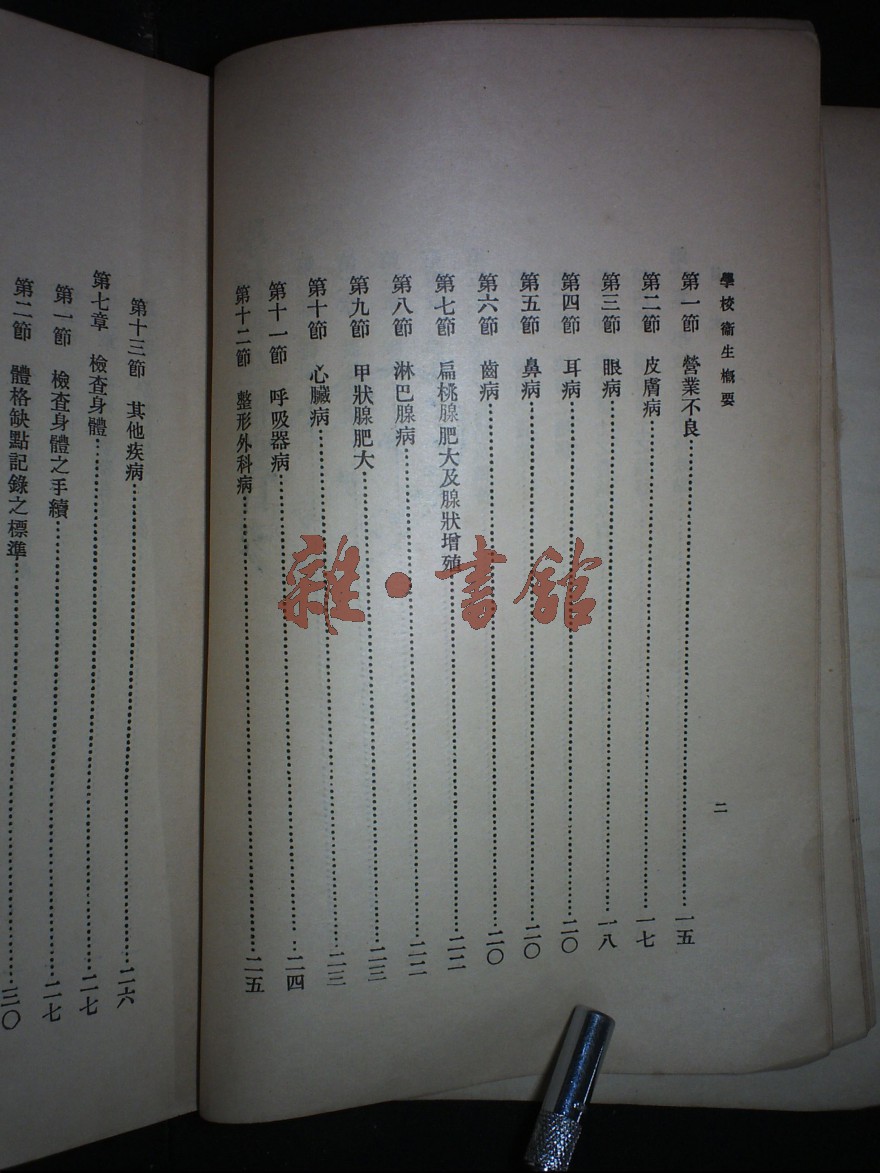 學校衞生概要
二
第一節　營業不良……一五
第二節　皮膚病……一七
第三節　眼病……一八
第四節　耳病……二〇
第五節　鼻病……二〇
第六節　齒病……二〇
第七節　扁桃腺肥大及腺狀增殖……二二
第八節　淋巴腺病……二二
第九節　甲狀腺肥大……二三
第十節　心臟病……二三
第十一節　呼吸器病……二四
第十二節　整形外科病……二五
第十三節　其他疾病……二六
第七章　檢查身體……二七
第一節　檢查身體之手續……二七
第二節　體格缺點記錄之標準……三〇
雜·書館